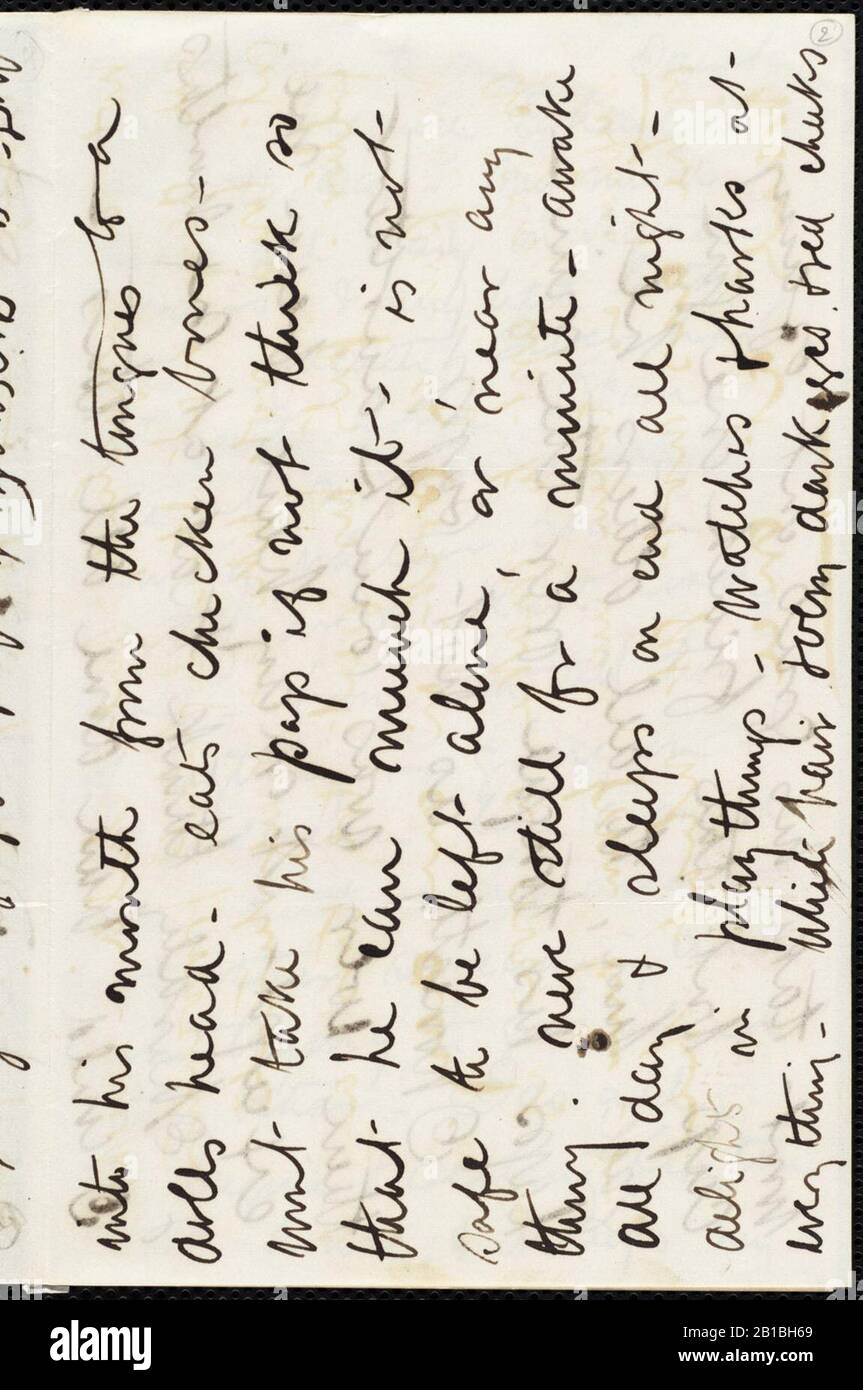 2
into his mouth from the tongues to a
dolls head - eats chicken bones -
wont take his pap if not thick so
that he can munch it - is not
safe to be left alone, or near any
thing. never still for a minute - awake
all day & sleeps on end all night -
delights in play things - watches & harks at
every thing - hair dark eyes. red cheeks
alamy
Image ID: 2B1BH69
www.alamy.com